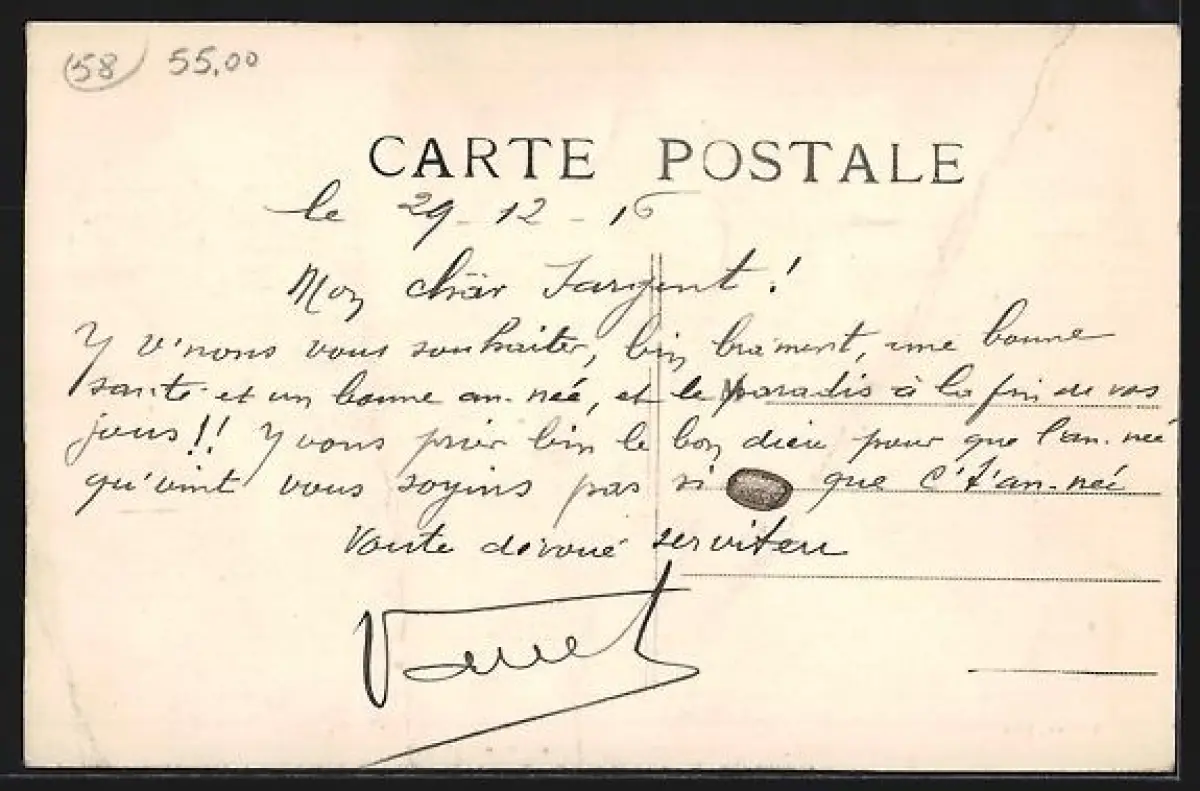 (58) 55,00
CARTE POSTALE
le 29-12-16
Mon chär Sargent !
Y v'nons vous souhaiter, bin brâment, une bonne
santé et un bonne an-néé, et le paradis à la fin de vos
jours!! Y vons prier bin le bon dieu pour que l'an-néé
qu'vint vous soyins pas si que c't'an-néé
Voute dévoué serviteu